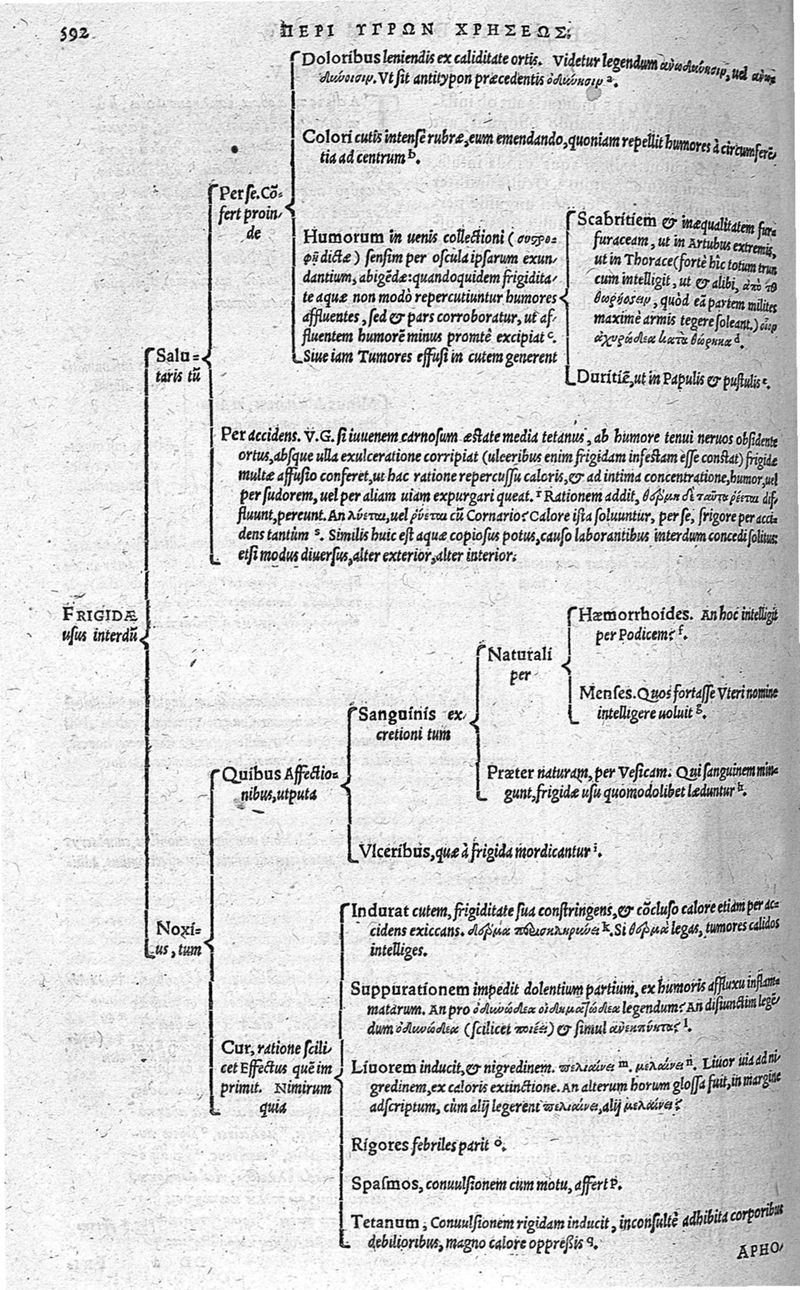 592
ΠΕΡΙ ΥΓΡΩΝ ΧΡΗΣΕΩΣ.
Doloribus leniendis ex caliditate ortis. Videtur legendum ἀνωδικώησιν, uel
Vt sit antitypon præcedentis ὀδικώησιρ ª.
Colori cutis intensè rubræ, eum emendando, quoniam repellit humores à circumferẽ
tia ad centrum ᵇ.
Per se. Cõ-
fert proin
de
Humorum in uenis collectioni (
dictæ) sensim per oscula ipsarum exun
dantium, abigẽdæ: quandoquidem frigidita
te aquæ non modò repercutiuntur humores
affluentes, sed & pars corroboratur, ut af-
fluentem humorẽ minus promtè excipiat ᶜ.
Siue iam Tumores effusi in cutem generent
Scabritiem & inæqualitatem fur-
furaceam, ut in Artubus extremis,
ut in Thorace (fortè hîc totum trun
cum intelligit, ut & alibi, ἀπὸ τῦ
θωρήσειρ, quòd eã partem milites
maximè armis tegere soleant.)
κατὰ θώρηκα ᵈ.
Duritiẽ, ut in Papulis & pustulis ᵉ.
Salu-
taris tũ
Per accidens. V.G. si iuuenem carnosum æstate media tetanus, ab humore tenui neruos obsidente
ortus, absque ulla exulceratione corripiat (ulceribus enim frigidam infestam esse constat) frigidæ
multæ affusio conferet, ut hac ratione repercussu caloris, & ad intima concentratione, humor, uel
per sudorem, uel per aliam uiam expurgari queat. ʳ Rationem addit, θέρμη δὲ ταῦτα ῥύεται dif-
fluunt, pereunt. An λύεται, uel ῥύεται cũ Cornario? Calore ista soluuntur, per se, frigore per acci
dens tantùm ˢ. Similis huic est aquæ copiosus potus, causo laborantibus interdum concedi solitus:
etsi modus diuersus, alter exterior, alter interior.
FRIGIDÆ
usus interdũ
Hæmorrhoides. An hoc intelligit
per Podicem? ᶠ.
Naturali
per
Menses. Quos fortasse Vteri nomine
intelligere uoluit ᵍ.
Sanguinis ex-
cretioni tum
Quibus Affectio-
nibus, utputa
Præter naturam, per Vesicam. Qui sanguinem min-
gunt, frigidæ usu quomodolibet læduntur ʰ.
Vlceribus, quæ à frigida mordicantur ⁱ.
Noxi-
us, tum
Indurat cutem, frigiditate sua constringens, & cõcluso calore etiam per ac-
cidens exiccans. δέρμα περισκληρύνει ᵏ. Si θερμὰ legas, tumores calidos
intelliges.
Suppurationem impedit dolentium partium, ex humoris affluxu inflam-
matarum. An pro ὀδυνώδεα οἰδηματώδεα legendum? An disiunctim legẽ-
dum ὀδυνώδεα (scilicet ποιέει) & simul ἀνεκπύητα ˡ.
Cur, ratione scili-
cet Effectus quẽ im
primit. Nimirum
quia
Liuorem inducit, & nigredinem. πελιαίνει ᵐ. μελαίνει ⁿ. Liuor uia ad ni-
gredinem, ex caloris extinctione. An alterum horum glossa fuit, in margine
adscriptum, cùm alij legerent πελιαίνει, alij μελαίνει?
Rigores febriles parit ᵒ.
Spasmos, conuulsionem cum motu, affert ᵖ.
Tetanum, Conuulsionem rigidam inducit, inconsultè adhibita corporibus
debilioribus, magno calore oppreßis ᑫ.
APHO-